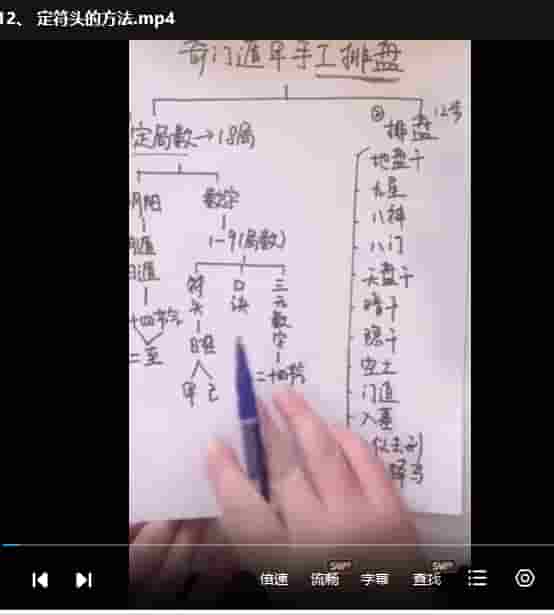 12、 定符头的方法.mp4
奇门遁甲手工排盘
定局数→18局
② 排盘 12步
地盘干
九星
八神
八门
天盘干
暗干
隐干
空亡
门迫
入墓
阴阳
数字
1-9(局数)
遁
遁
十四节气
二至
符头
日柱
甲 己
口诀
三元数字
二十四节
倍速
流畅
SVIP
字幕
查找
SVIP